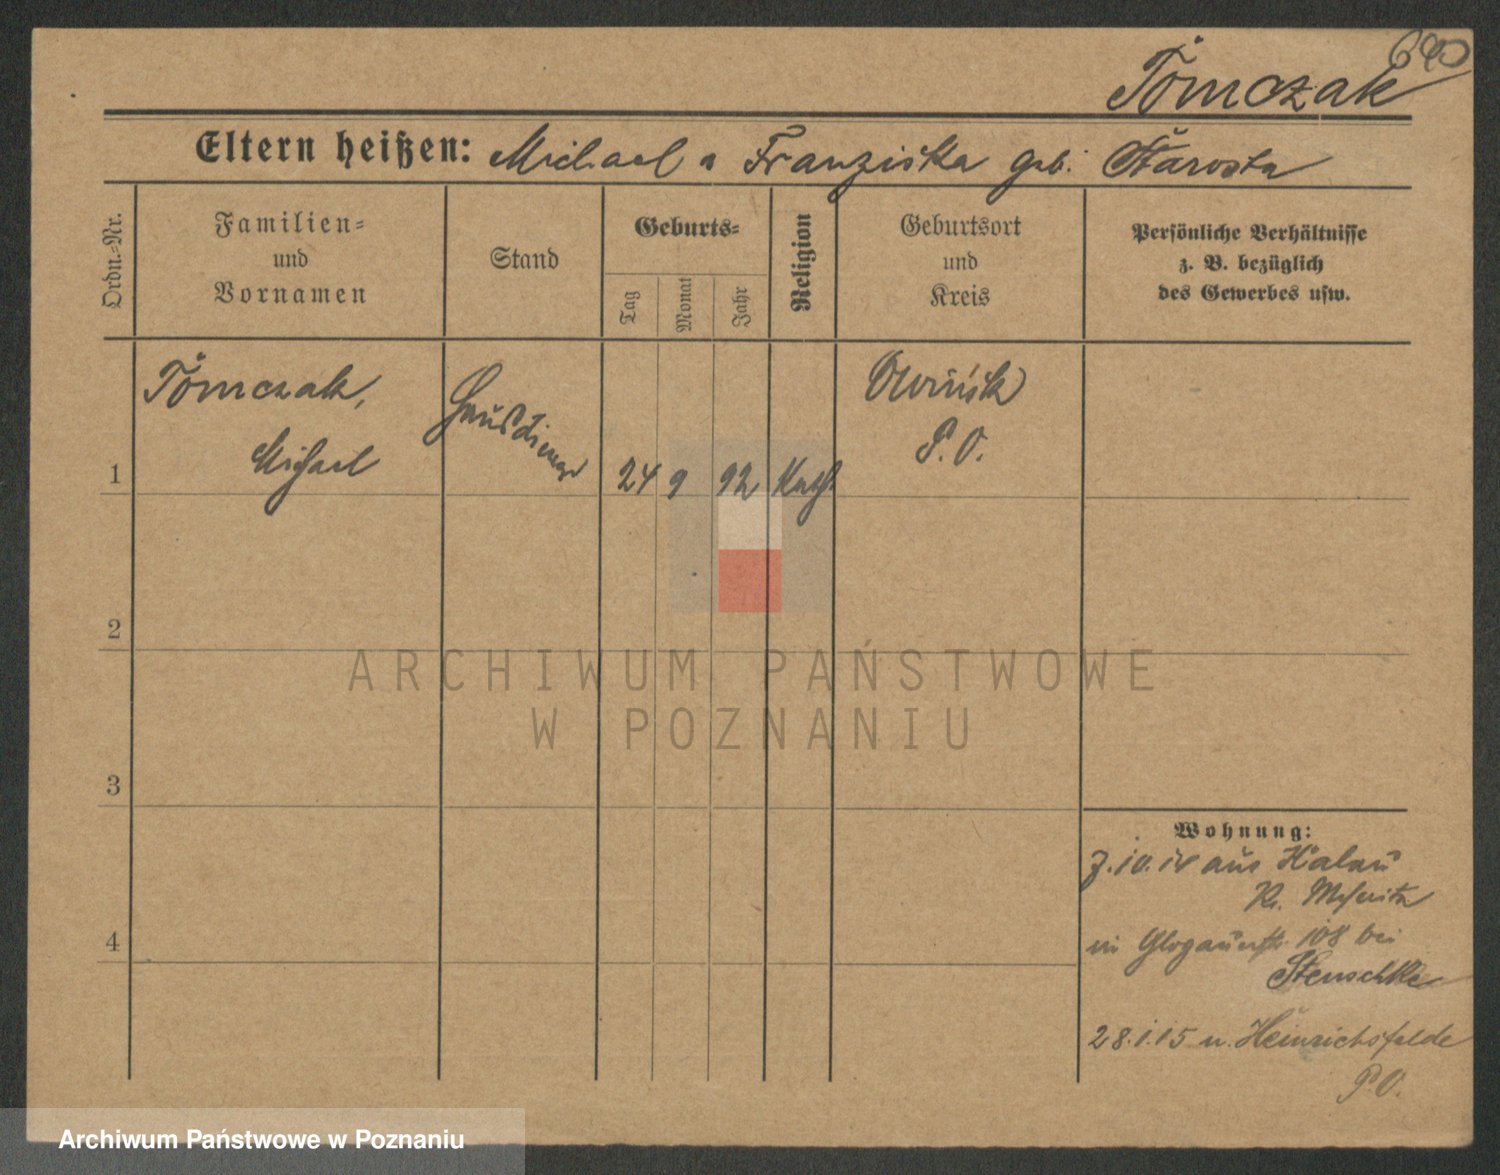 640
Tomczak
Eltern heißen: Michael u Franziska geb. Starosta
Ordn.-Nr.
Familien=
und
Vornamen
Stand
Geburts=
Tag
Monat
Jahr
Religion
Geburtsort
und
Kreis
Persönliche Verhältnisse
z. B. bezüglich
des Gewerbes usw.
1
Tomczak,
Michael
Hausdiener
24
9
92
Kath
Owinsk
P. O.
2
3
4
Wohnung:
7.10.14 aus Kalau
Kr. Meseritz
in Glogauerstr. 108 bei
Stenschke
28.1.15 n. Heinrichsfelde
P. O.
ARCHIWUM PAŃSTWOWE
W POZNANIU
Archiwum Państwowe w Poznaniu